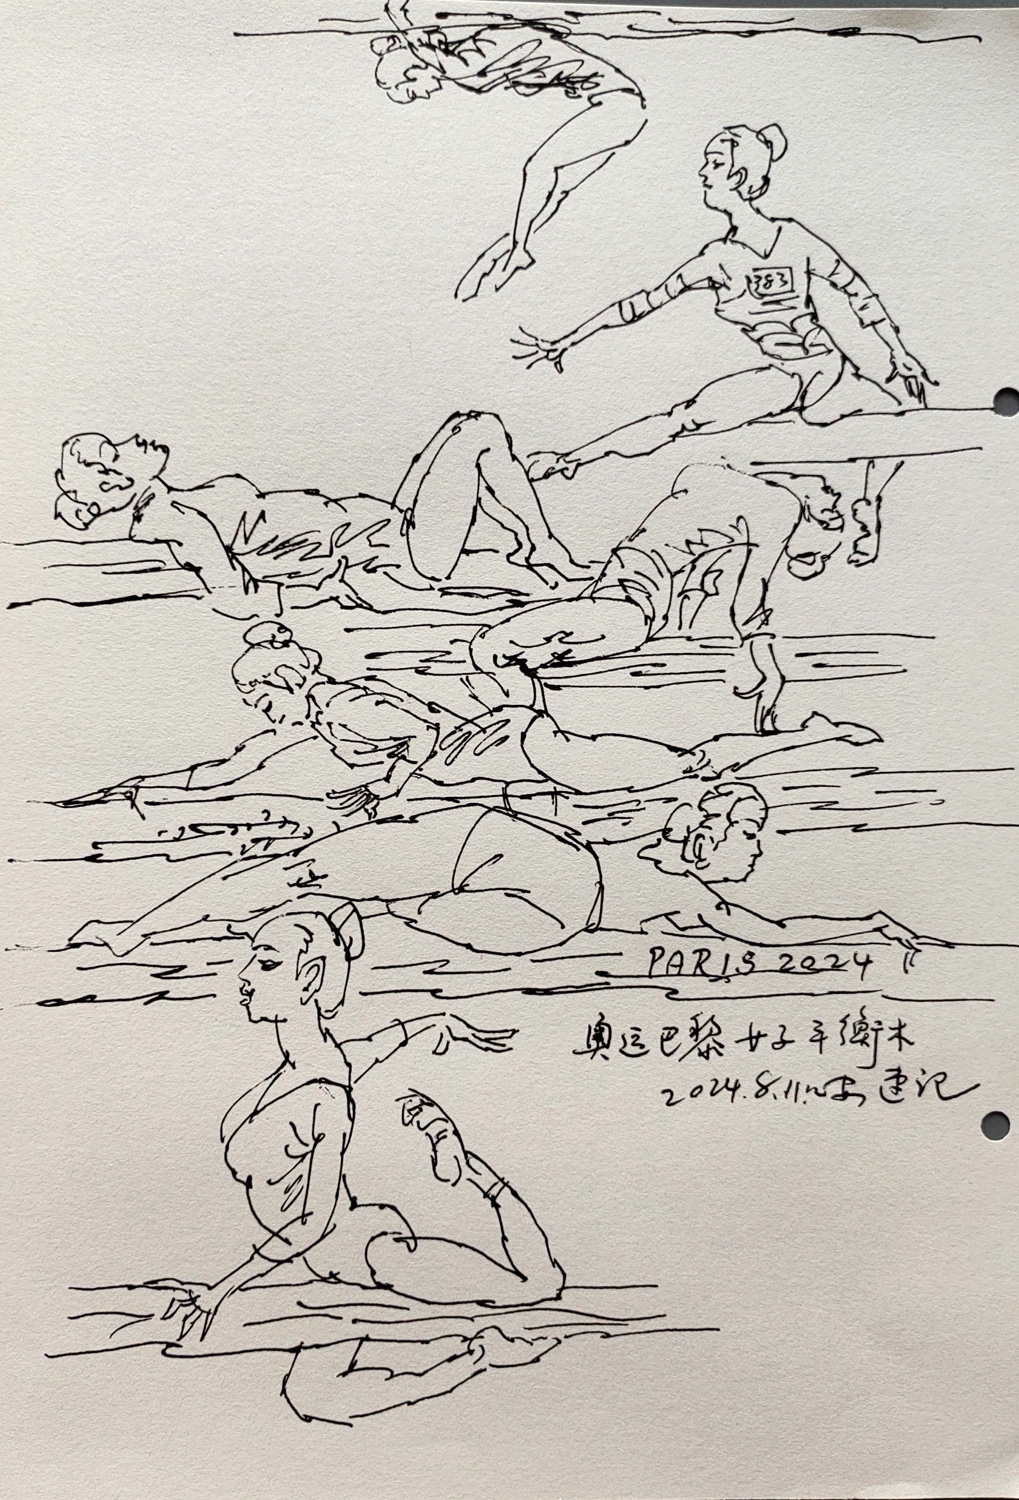 383
PARIS 2024
奥运巴黎女子平衡木
2024.8.11. 速记